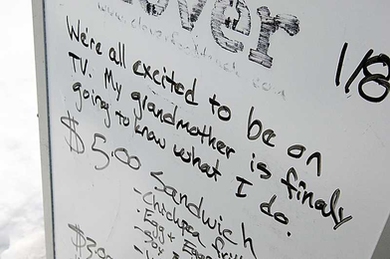 over
www.cloverfoodtruck.com
1/8
We're all excited to be on
TV. My grandmother is finaly
going to know what I do.
$5.00 Sandwich
- Chickpea
- Egg + Egg
$3.00